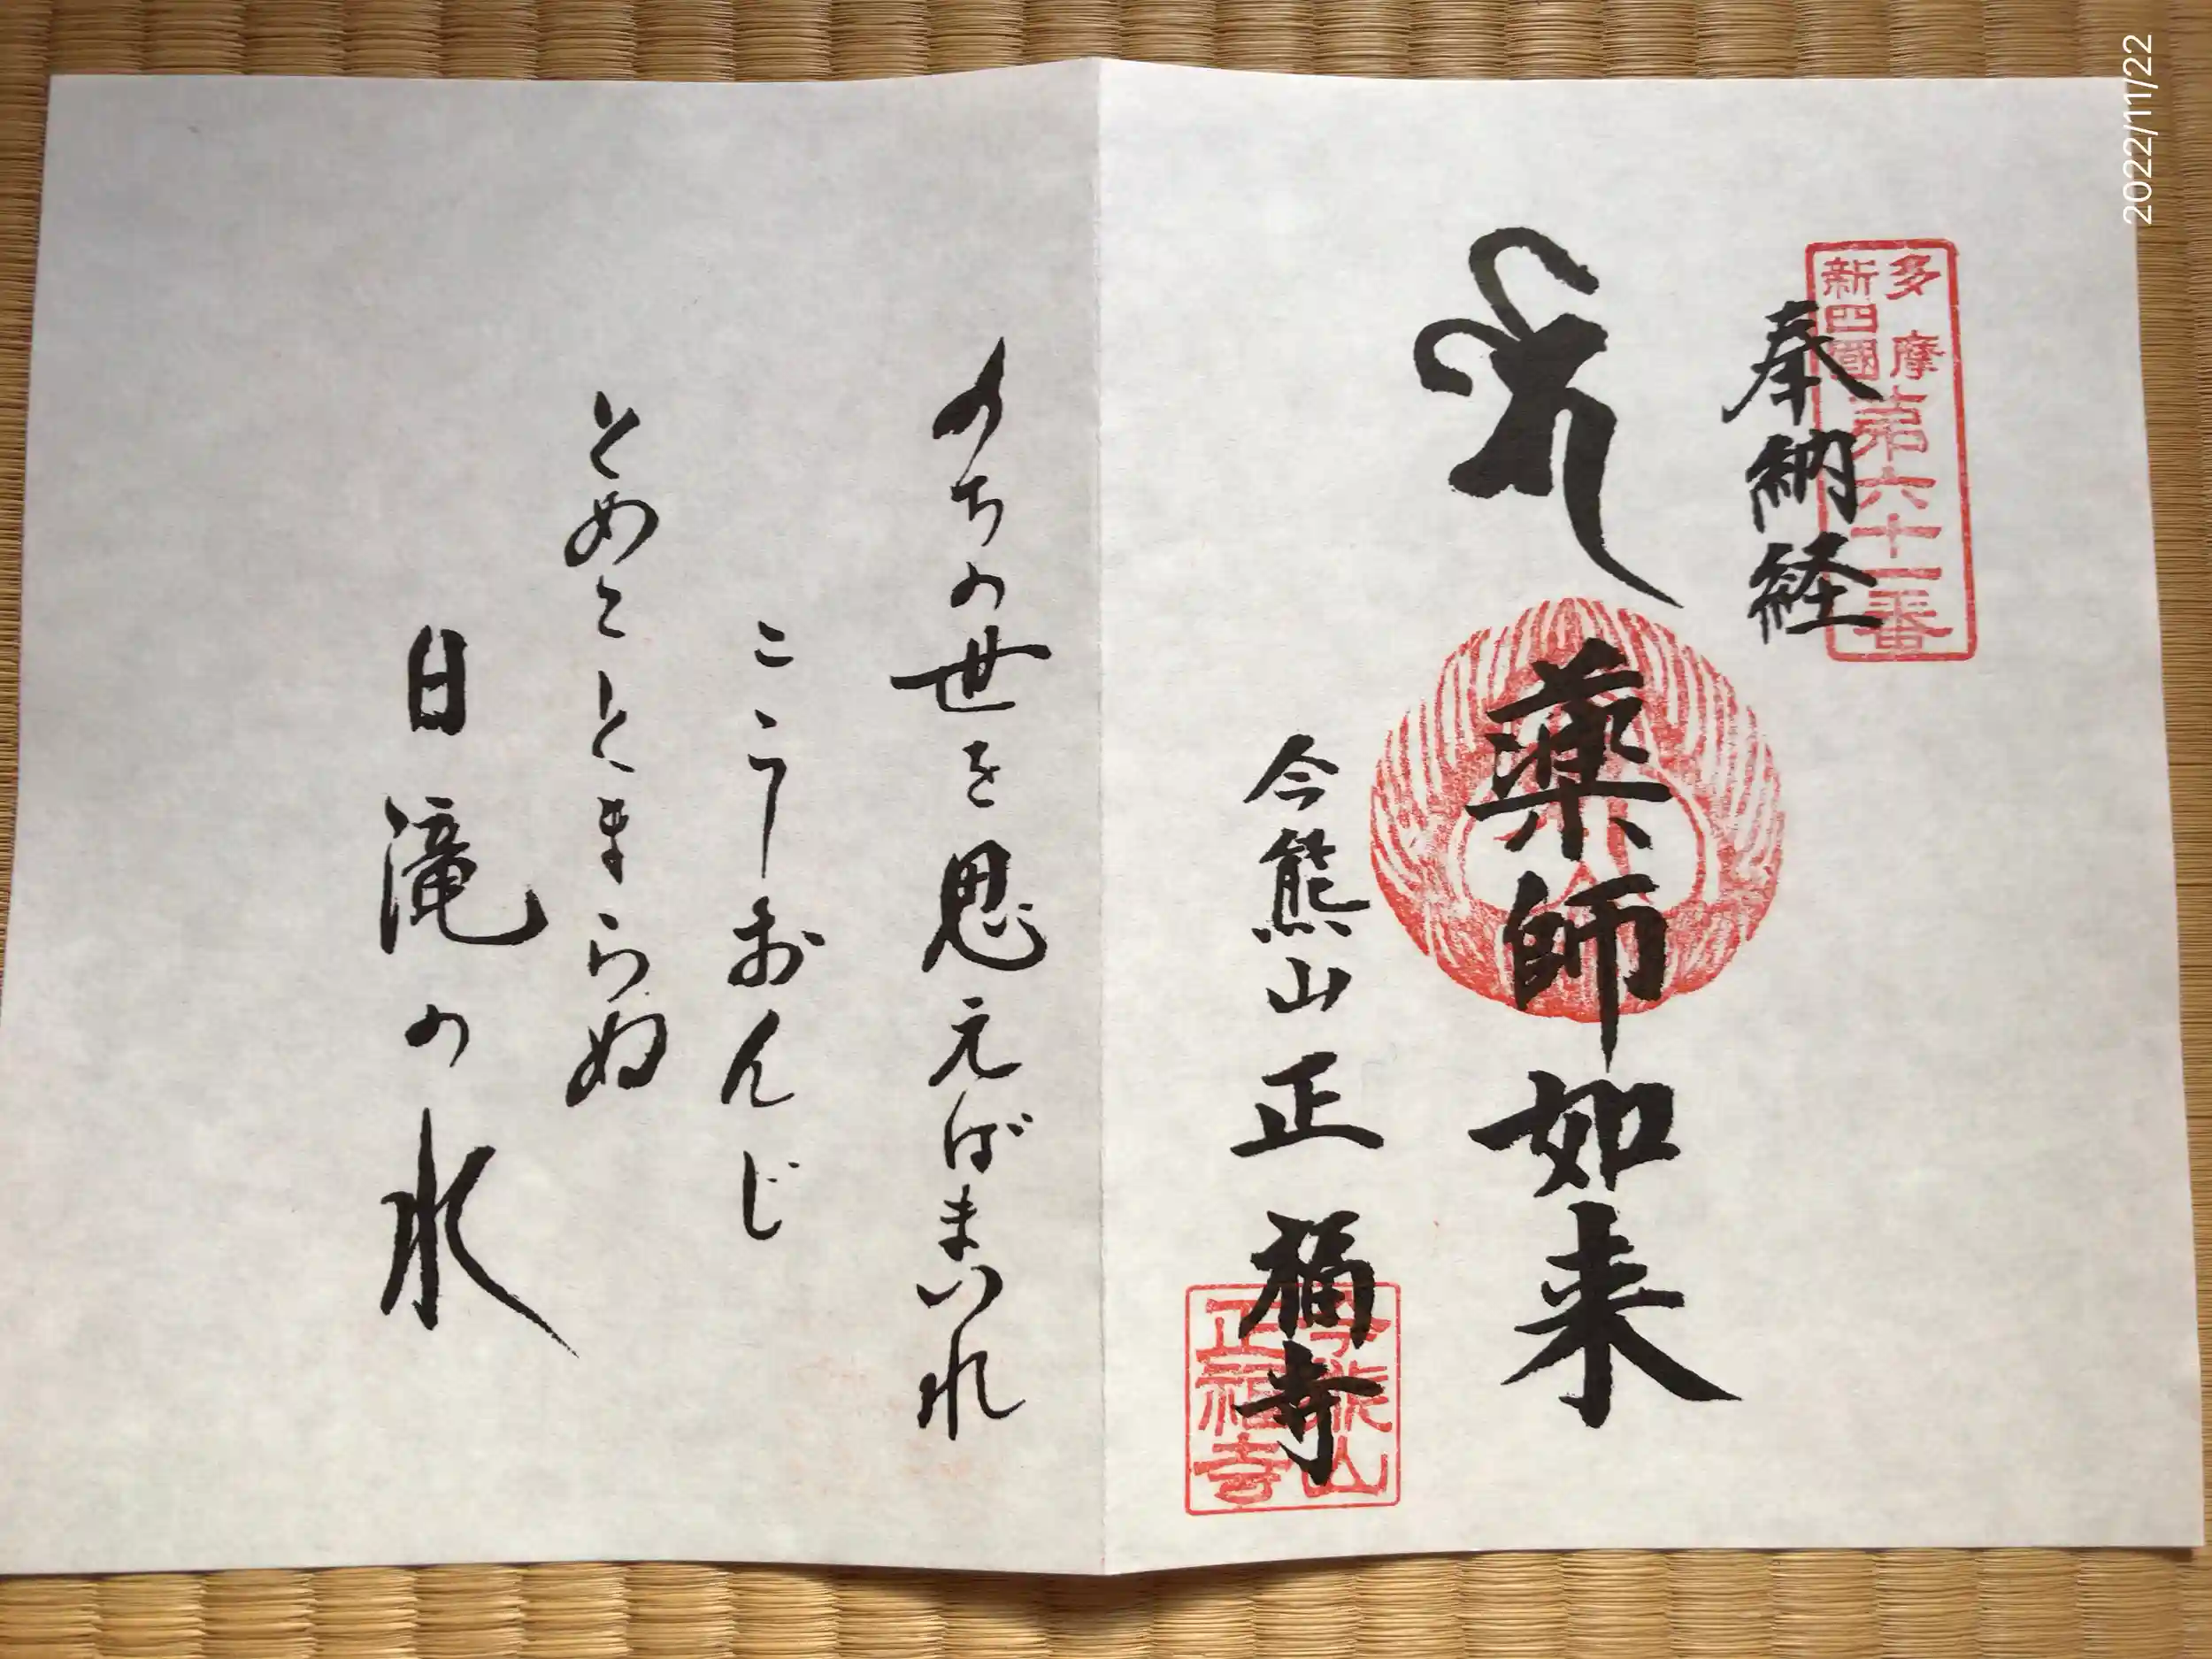 2022/11/22
多摩
新四國
第六十一番
奉納経
薬師如来
今熊山正福寺
正福寺
のちの世を思えばまいれ
こうおんじ
とめてとまらぬ
白滝の水